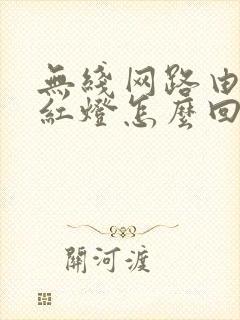 無綫网路由
紅燈怎麼回
關河渡